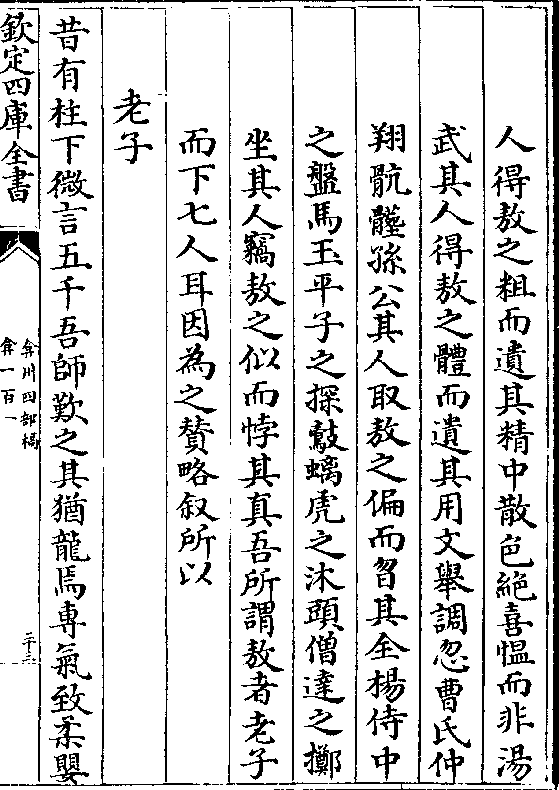 人得敖之粗而遺其精中散色絶喜慍而非湯
武其人得敖之體而遺其用文舉調忽曹氏仲
翔骯髒孫公其人取敖之偏而曶其全楊侍中
之盤馬王平子之探鷇螭虎之沐頭僧達之擲
坐其人竊敖之似而悖其真吾所謂敖者老子
而下七人耳因為之賛略叙所以
老子
昔有柱下微言五千吾師歎之其猶龍焉專氣致柔嬰
欽定四庫全書
弇州四部稿
弇一百一